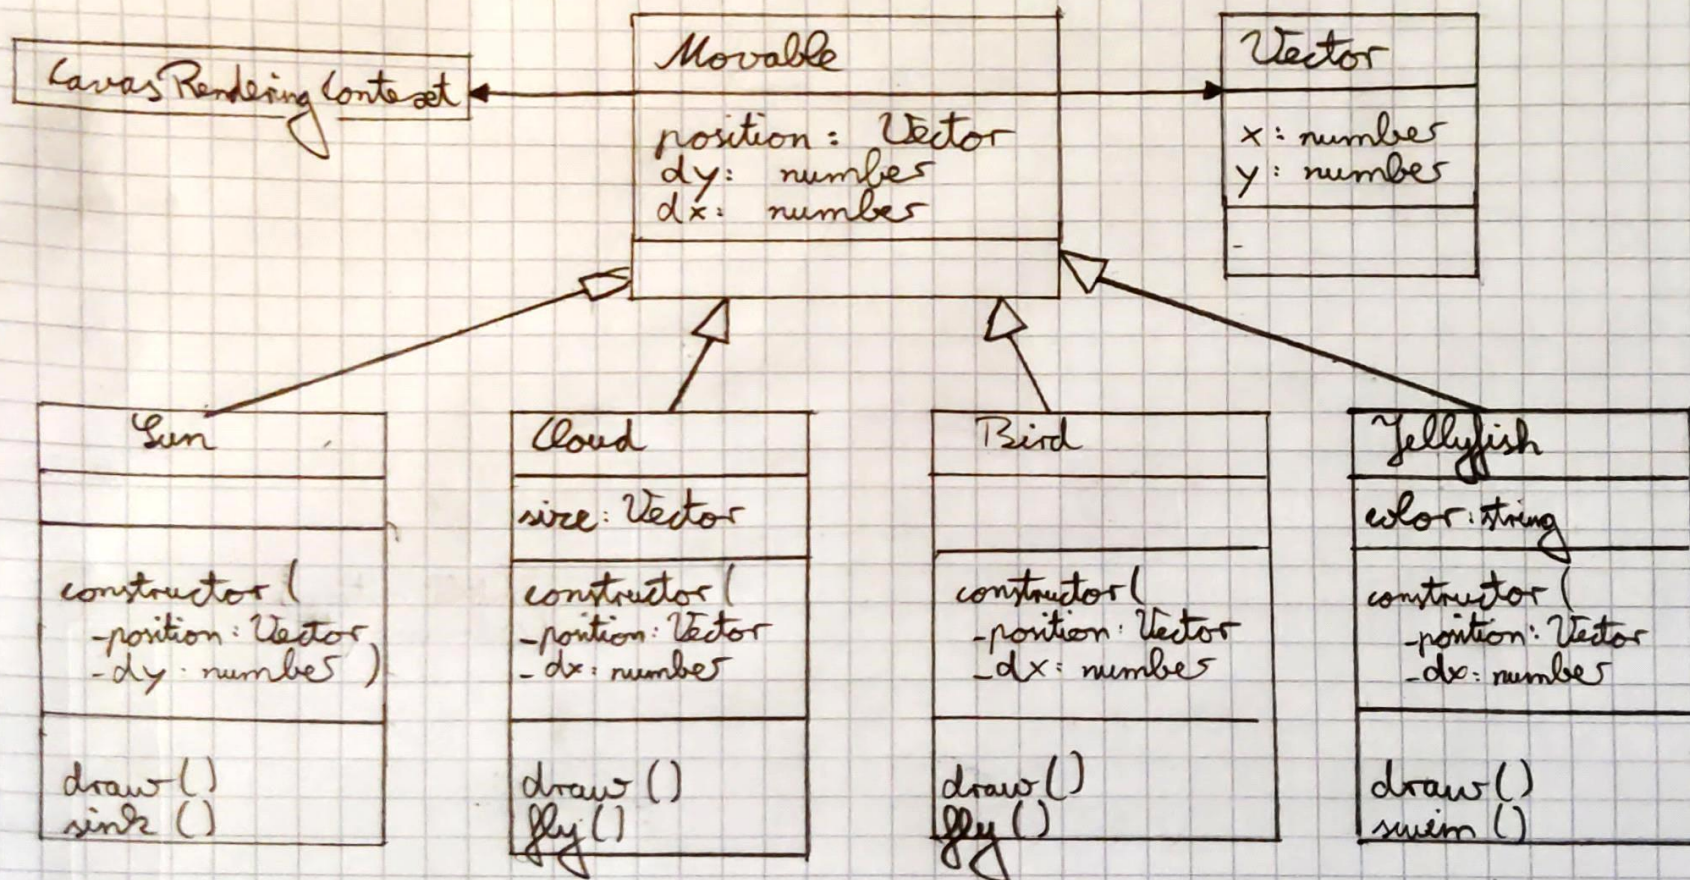 CavasRenderingContext
Movable
position: Vector
dy: number
dx: number
Vector
x: number
y: number
-
Sun
constructor(
_position: Vector
_dy: number)
draw()
sink()
Cloud
size: Vector
constructor(
_position: Vector
_dx: number
draw()
fly()
Bird
constructor(
_position: Vector
_dx: number
draw()
fly()
Jellyfish
color: string
constructor(
_position: Vector
_dx: number
draw()
swim()